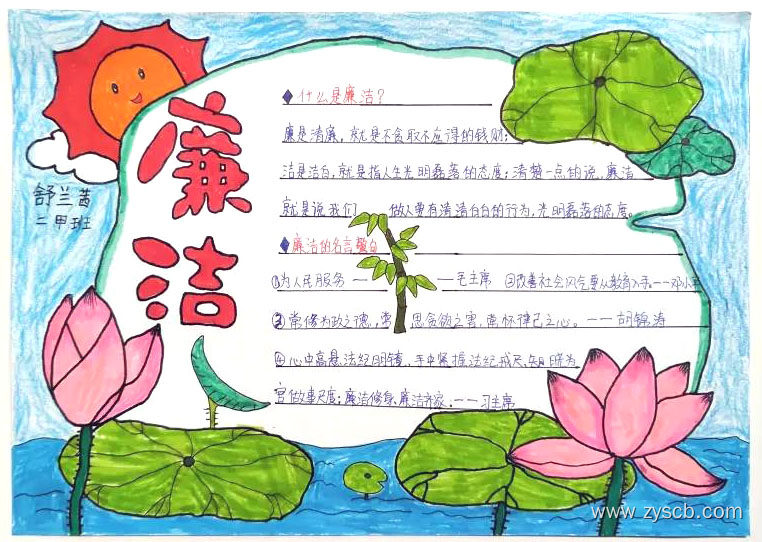 廉洁
舒兰茜
二甲班
◆什么是廉洁?
廉是清廉,就是不贪取不应得的钱财;
洁是洁白,就是指人生光明磊落的态度;清楚一点的说,廉洁
就是说我们 做人要有清清白白的行为,光明磊落的态度。
◆廉洁的名言警句
①为人民服务 —— 毛主席 ②改善社会风气要从教育入手。——邓小平
③常修为政之德,常 思贪欲之害,常怀律己之心。——胡锦涛
④心中高悬法纪明镜,手中紧握法纪戒尺,知晓为
官做事尺度;廉洁修身,廉洁齐家,——习主席
www.zyscb.com